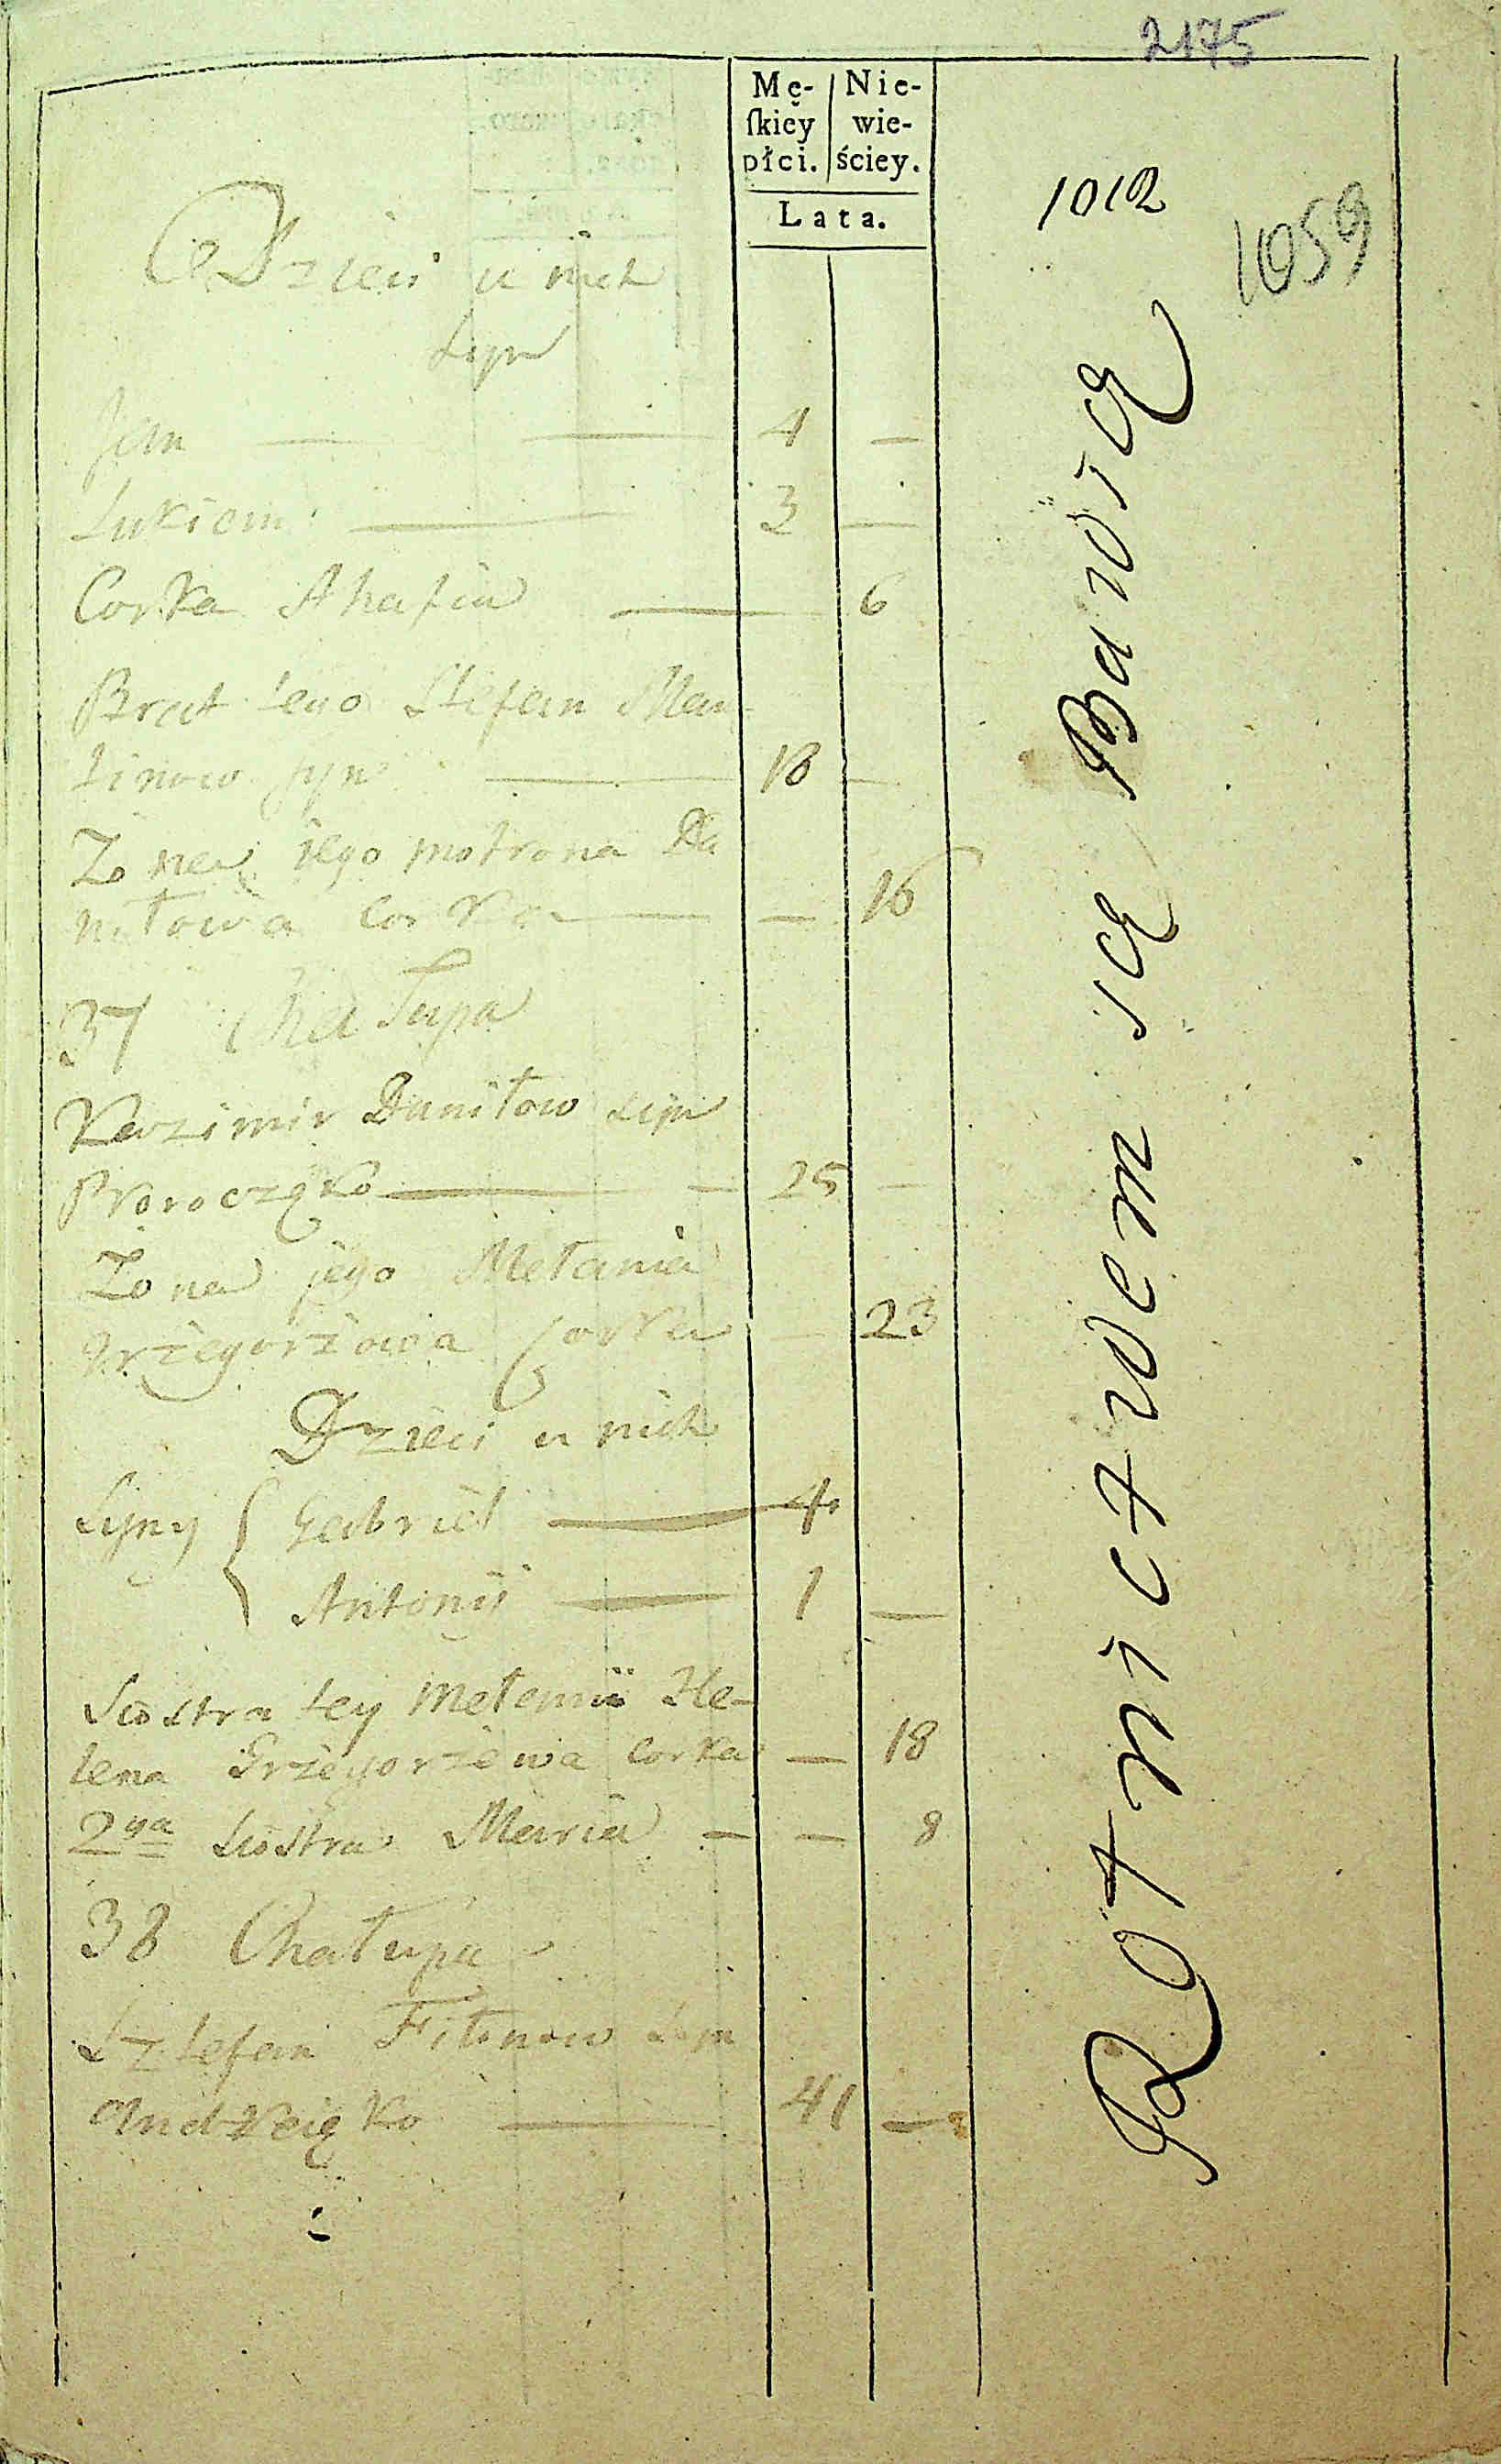 2175
Mę- Nie-
ſkiéy wie-
płci. ściey.
Lata.
1012
1059
Dzieci u nich
Syn
Jan — — 4 —
Łukiem — 3 —
Corka Ahafia — 6
Brat tego Stefan Mar-
tinow syn — 18 —
Żona jego motrona Da
niłowa Corka — — 16
37 Chałupa
Kazimir Daniłow syn
25 —
Żona jego Mełania
Grzegorzowa Corka — 23
Dzieci u nich
Syny { Gabriel — 4
Antonij — 1 —
Siostra tey Mełanii He-
lena Grzegorzewa Corka — 18
2ga Siostra Maria — — 8
38 Chałupa
Sztefan Filonow Syn
— 41 —
Rotnictwem się Bawiące